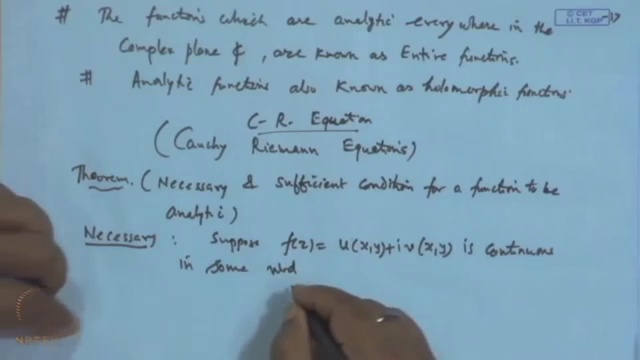 © CET
I.I.T. KGP
# The functions which are analytic everywhere in the
Complex plane ₵, are known as Entire functions.
# Analytic functions also known as holomorphic functions.
C-R. Equation
(Cauchy Riemann Equations)
Theorem. (Necessary & sufficient condition for a function to be
analytic)
Necessary : Suppose f(z) = u(x,y)+iv(x,y) is continuous
in some nbd